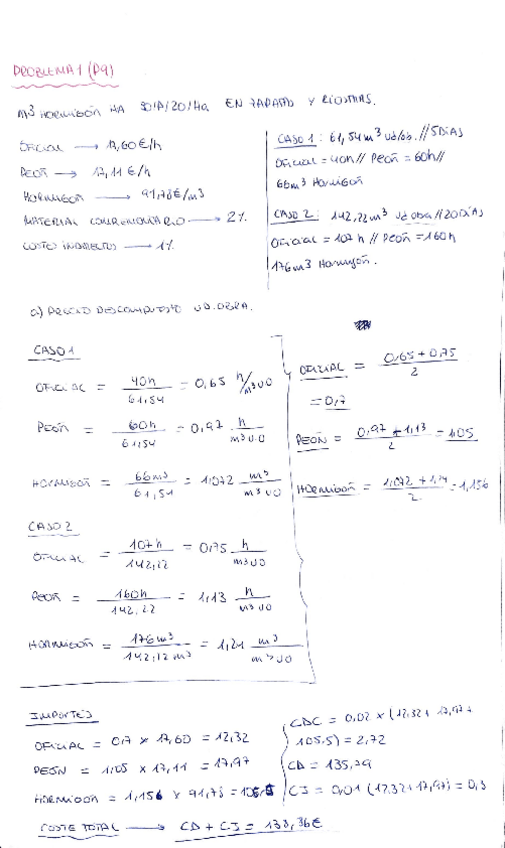 PROBLEMA 1 (P9)
M³ HORMIGÓN HA 30/P/20/Ha EN ZAPATAS Y RIOSTRAS.
OFICIAL → 17,60 €/h
PEÓN → 17,11 €/h
HORMIGÓN → 91,73 €/m³
MATERIAL COMPLEMENTARIO → 2%
COSTES INDIRECTOS → 1%
CASO 1: 61,54 m³ ud/ob. // 5 DÍAS
OFICIAL = 40h // PEÓN = 60h //
66m³ HORMIGÓN
CASO 2: 142,22 m³ Ud obra // 20 DÍAS
OFICIAL = 107 h // PEÓN = 160 h
176 m³ HORMIGÓN.
a) PRECIO DESCOMPUESTO UD. OBRA.
CASO 1
OFICIAL = 40h / 61,54 = 0,65 h/m³UO
PEÓN = 60h / 61,54 = 0,97 h / m³ U.O
HORMIGÓN = 66m³ / 61,54 = 1,072 m³ / m³ UO
CASO 2
OFICIAL = 107h / 142,22 = 0,75 h / m³ UO
PEÓN = 160h / 142,22 = 1,13 h / m³ UO
HORMIGÓN = 176m³ / 142,22 m³ = 1,24 m³ / m³ UO
OFICIAL = 0,65 + 0,75 / 2
= 0,7
PEÓN = 0,97 + 1,13 / 2 = 1,05
HORMIGÓN = 1,072 + 1,24 / 2 = 1,156
IMPORTES
OFICIAL = 0,7 × 17,60 = 12,32
PEÓN = 1,05 × 17,11 = 17,97
HORMIGÓN = 1,156 × 91,73 = 105,5
COSTE TOTAL → CD + CI = 133,36€
CDC = 0,02 × (12,32 + 17,97 +
105,5) = 2,72
CD = 135,79
CI = 0,01 (12,32 + 17,97) = 0,3